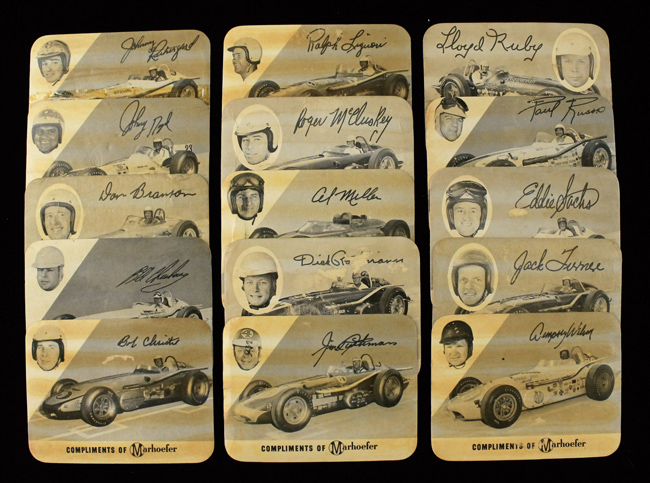 Johnny
Rutherford
Johnny
23
Don Branson
Bob Christie
COMPLIMENTS OF Marhoefer
Ralph Liguori
Roger McCluskey
Al Miller
Dick
Jim
COMPLIMENTS OF Marhoefer
Lloyd Ruby
Paul Russo
Eddie Sachs
Jack Turner
Dempsey Wilson
COMPLIMENTS OF Marhoefer